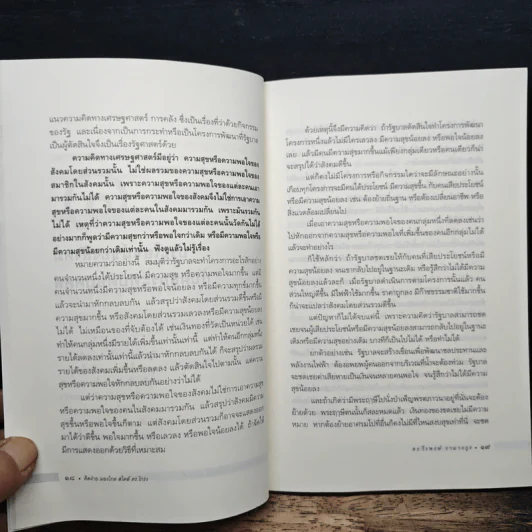 แนวความคิดทางเศรษฐศาสตร์ การคลัง ซึ่งเป็นเรื่องที่ว่าด้วยกิจกรรม
ของรัฐ และเนื่องจากเป็นการกระทำหรือเป็นโครงการพัฒนาที่รัฐบาล
เป็นผู้ตัดสินใจจึงเป็นเรื่องรัฐศาสตร์ด้วย
ความคิดทางเศรษฐศาสตร์มีอยู่ว่า ความสุขหรือความพอใจของ
สังคมโดยส่วนรวมนั้น ไม่ใช่ผลรวมของความสุขหรือความพอใจของ
สมาชิกในสังคมนั้น เพราะความสุขหรือความพอใจของแต่ละคนเอา
มารวมกันไม่ได้ ความสุขหรือความพอใจของสังคมจึงไม่ใช่การเอาความ
สุขหรือความพอใจของแต่ละคนในสังคมมารวมกัน เพราะมันรวมกัน
ไม่ได้ เหตุที่ว่าความสุขหรือความพอใจของแต่ละคนนั้นวัดกันไม่ได้
อย่างมากก็พูดว่ามีความสุขกว่าหรือพอใจกว่าเดิม หรือมีความพอใจหรือ
มีความสุขน้อยกว่าเดิมเท่านั้น ฟังดูแล้วไม่รู้เรื่อง
หมายความว่าอย่างนี้ สมมุติว่ารัฐบาลจะทำโครงการอะไรสักอย่าง
คนจำนวนหนึ่งได้ประโยชน์ มีความสุข หรือความพอใจมากขึ้น แต่มี
คนจำนวนหนึ่งมีความสุขหรือความพอใจน้อยลง หรือมีความทุกข์มากขึ้น
แล้วจะนำมาหักกลบลบกัน แล้วสรุปว่าสังคมโดยส่วนรวมดีขึ้นหรือมี
ความสุขมากขึ้น หรือสังคมโดยส่วนรวมเลวลงหรือมีความสุขน้อยลง
ไม่ได้ ไม่เหมือนของที่จับต้องได้ เช่นเงินทองที่วัดเป็นหน่วยได้ เช่น
ทำให้คนกลุ่มหนึ่งมีรายได้เพิ่มขึ้นเท่านั้นเท่านี้ แต่ทำให้คนอีกกลุ่มหนึ่ง
รายได้ลดลงเท่านั้นเท่านี้แล้วนำมาหักกลบลบกันได้ ก็จะสรุปว่าผลรวม
รายได้ของสังคมเพิ่มขึ้นหรือลดลง แล้วตัดสินใจไปตามนั้น แต่ความ
สุขหรือความพอใจหักกลบลบกันอย่างว่าไม่ได้
แต่ว่าความสุขหรือความพอใจของสังคมไม่ใช่การเอาความสุข
หรือความพอใจของคนในสังคมมารวมกัน แล้วสรุปว่าสังคมมีความสุข
หรือความพอใจขึ้นก็ตาม แต่สังคมโดยส่วนรวมก็อาจจะแสดงออก
มาได้ว่าดีขึ้น พอใจมากขึ้น หรือเลวลง หรือพอใจน้อยลงได้ ถ้าจัดให้
มีการแสดงออกด้วยวิธีที่เหมาะสม
๒๘ • คิดง่าย มองไกล สไตล์ ดร.โกร่ง
ด้วยเหตุนี้จึงมีความคิดว่า ถ้ารัฐบาลตัดสินใจทำโครงการพัฒนา
โครงการหนึ่งแล้วไม่มีใครเลวลง หรือมีความสุขน้อยลง หรือพอใจน้อยลง
เลย แล้วมีคนมีความสุขมากขึ้นแม้เพียงกลุ่มเดียวหรือคนเดียวก็น่า
จะสรุปได้ว่าสังคมดีขึ้น
แต่ก็คงไม่มีโครงการหรือกิจกรรมใดว่าจะมีลักษณะอย่างนั้น
เกือบทุกโครงการจะมีคนได้ประโยชน์ มีความสุขขึ้น กับคนเสียประโยชน์
หรือมีความสุขน้อยลง เช่น ต้องย้ายถิ่นฐาน หรือต้องเปลี่ยนอาชีพ หรือ
สิ่งแวดล้อมเปลี่ยนไป
เมื่อเอาความสุขหรือความพอใจของคนกลุ่มหนึ่งที่ลดลงเช่นว่า
ไปหักออกจากความสุขหรือความพอใจที่เพิ่มขึ้นของคนอีกกลุ่มไม่ได้
แล้วจะทำอย่างไร
ก็ใช้หลักว่า ถ้ารัฐบาลชดเชยให้กับคนที่เสียประโยชน์หรือมี
ความสุขน้อยลง จนเขากลับไปอยู่ในฐานะเดิม หรือรู้สึกว่าไม่ได้มีความ
สุขน้อยลงแล้วละก็ เมื่อรัฐบาลดำเนินการตามโครงการนั้นแล้ว คน
ส่วนใหญ่ดีขึ้น มีไฟฟ้าใช้มากขึ้น ราคาถูกลง มีก๊าซธรรมชาติใช้มากขึ้น
ก็น่าจะแปลว่าสังคมโดยส่วนรวมดีขึ้นได้
แต่ปัญหาก็ไม่จบแค่นี้ เพราะความคิดว่ารัฐบาลสามารถชด
เชยจนผู้เสียประโยชน์หรือมีความสุขน้อยลงสามารถกลับไปอยู่ในฐานะ
เดิมหรือมีความสุขอย่างเดิม บางทีก็เป็นไปไม่ได้ หรือทำไม่ได้
ยกตัวอย่างเช่น รัฐบาลจะสร้างเขื่อนเพื่อพัฒนาชลประทานและ
พลังงานไฟฟ้า ต้องอพยพผู้คนออกจากบริเวณที่น้ำจะต้องท่วม รัฐบาล
จะชดเชยค่าเสียหายเป็นเงินจนหลายคนพอใจ จนรู้สึกว่าไม่ได้มีความ
สุขน้อยลง
และถ้าเกิดว่ามีพระฤๅษีไปนั่งบำเพ็ญพรตภาวนาอยู่ที่นั่นจะต้อง
ย้ายด้วย พระฤๅษีตนนั้นก็สละหมดแล้ว เงินทองของชดเชยไม่มีความ
หมาย หากต้องย้ายอาศรมไปที่อื่นก็คงไม่มีที่ไหนสงบสุขเท่าที่นี่ จะชด
ดร.วีรพงษ์ รามางกูร • ๒๙